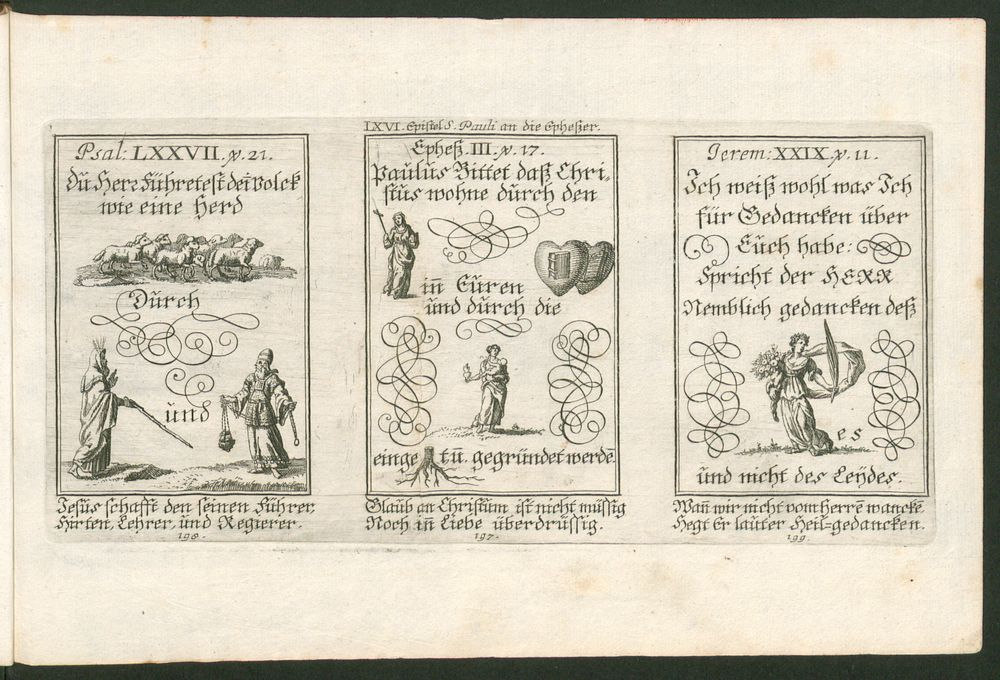 Psal: LXXVII. ꝟ. 21.
Dū Herr Führetest dei̅ Volck
wie eine Herd
Dūrch
und
Jesūs schafft den seinen Führer,
Hirten, Lehrer, und Regierer.
198.
LXVI. Epistel S. Pauli an die Epheßer.
Epheß. III. ꝟ. 17.
Paūlūs Bittet daß Chri,,
stūs wohne dūrch den
in̅ Eūren
und dūrch die
einge tū. gegründet werdē.
Glaūb an Christūm ist nicht müssig
Noch in̅ Liebe überdrüssig.
197.
Jerem: XXIX. ꝟ. 11.
Ich weiß wohl was Ich
für Gedancken über
Eūch habe:
Spricht der HERR
Nemblich gedancken deß
es
und nicht des Leÿdes.
Wan̅ wir nicht vom Herrē wanckē
Hegt Er laūter Heil-gedancken.
199.